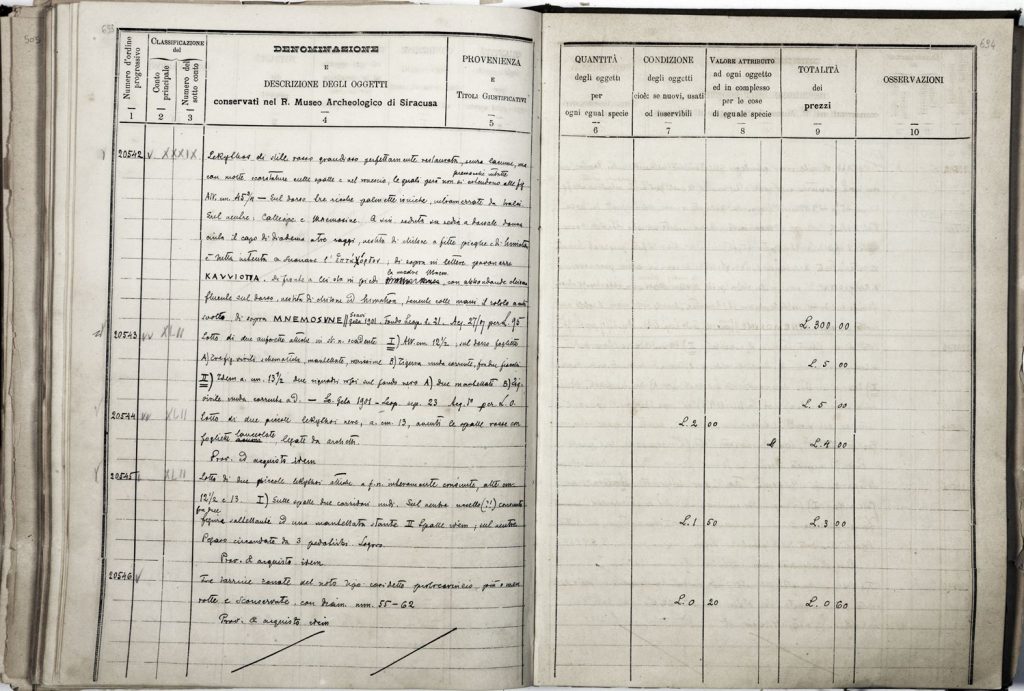 505
693
694
Numero d'ordine progressivo
CLASSIFICAZIONE del
Conto principale
Numero del sotto conto
DENOMINAZIONE
E
DESCRIZIONE DEGLI OGGETTI
conservati nel R. Museo Archeologico di Siracusa
PROVENIENZA
E
TITOLI GIUSTIFICATIVI
1 2 3 4 5
QUANTITÀ
degli oggetti
per
ogni egual specie
6
CONDIZIONE
degli oggetti
cioè: se nuovi, usati
od inservibili
7
VALORE ATTRIBUITO
ad ogni oggetto
ed in complesso
per le cose
di eguale specie
8
TOTALITÀ
dei
prezzi
9
OSSERVAZIONI
10
20542 v. XXXIX Lekythos di stile rosso grandioso perfettamente restaurata, senza lacune, ma
con molte scrostature sulle spalle e nel rovescio, le quali però non si estendono alle fig.
Alt. cm. 45 — Sul dorso tre ricche palmette ioniche,
Sul ventre: Calliope e Mnemosine. A sin. seduta su sedia a dorsale donna
cinta il capo di diadema a tre raggi, vestita di chitone a fitte pieghe e di himation
è tutta intenta a suonare l' ; di sopra in lettere
KAVVIOTTA. di fronte a lei sta in piedi la madre con abbondante chioma
fluente sul dorso, vestita di chitone ed himation, tenente colle mani il rotolo
svolto, di sopra MNEMOSVNE Scavi Gela 1901. Fondo Leop. s. 21. Acq. per L. 95
L. 300 00
20543 vv XLII Lotto di due anforette attiche in st. n. scadente I) Alt. cm. 12½; sul dorso foglette
A) tre fig. virili schematiche, mantellate, B) Figura nuda corrente, fra due
L. 5 00
II) Idem a. cm. 13½ due riquadri rossi sul fondo nero A) Due mantellati B) Fig.
virile nuda corrente a d. — Sc. Gela 1901 - Leop. sep. 23 Acq. per L. 0.
L. 5 00
20544 vv XLII Lotto di due piccole lekythoi nere, a. cm. 13, aventi le spalle rosse con
L. 2 00
fogliette lanceolate, legate da archetti.
L. 4 00
Prov. ed acquisto idem
20545 XLII Lotto di due piccole lekythoi attiche a f. n. interamente consunte, alte cm.
12½ e 13. I) Sulle spalle due corridori nudi. Sul ventre
figura saltellante ed una mantellata stante II Spalle idem; sul ventre
L. 1 50 L. 3 00
Pegaso circondato da 3
Prov. & acquisto idem
20546 v Tre
rotte e sconservate, con diam. mm. 55 – 62
L. 0 20 L. 0 60
Prov. & acquisto idem